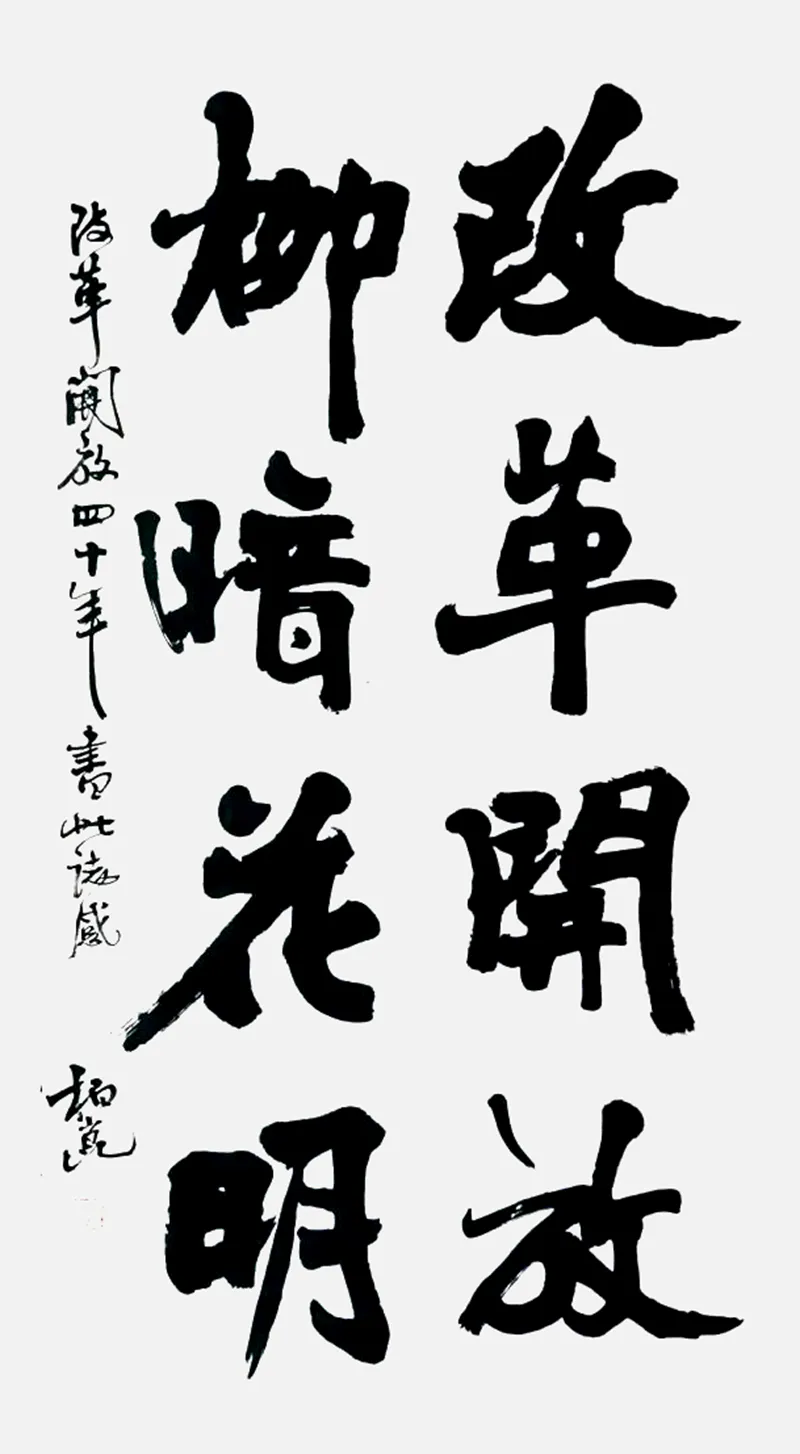 改革開放
柳暗花明
改革開放四十年書此誌感